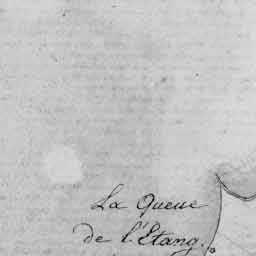 La Queue
de l'Etang.